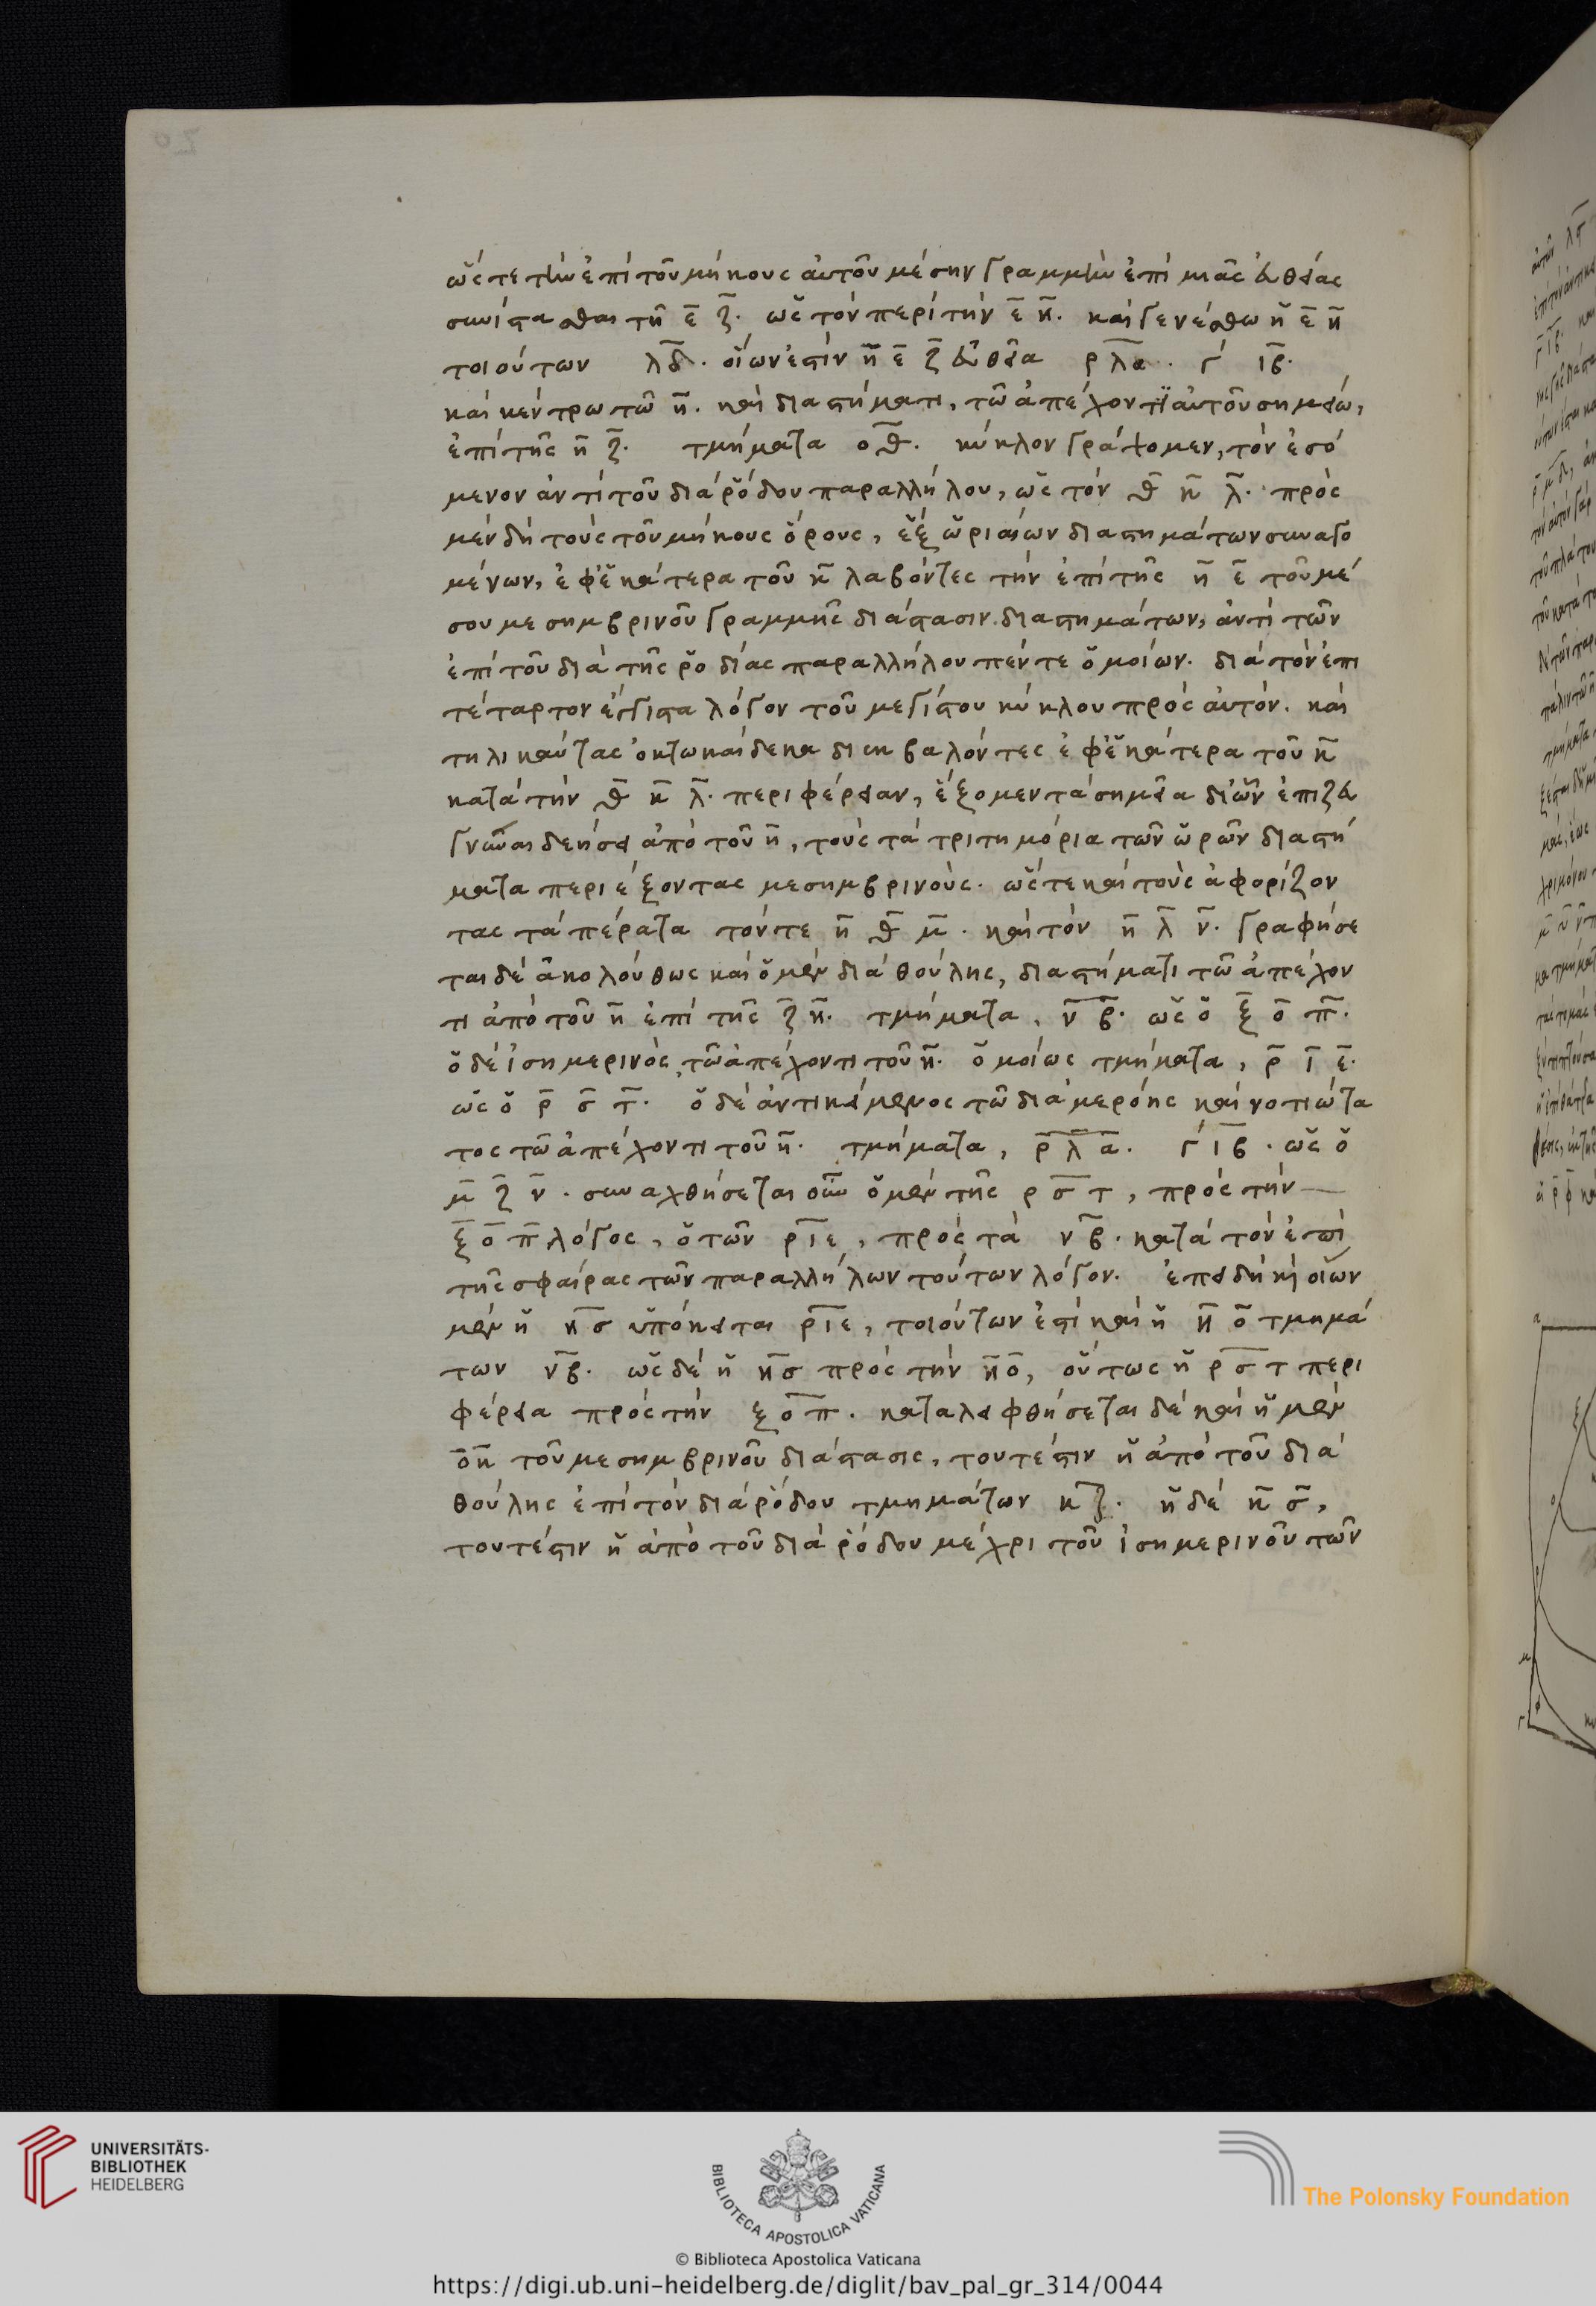 ὥστε τὴν ἐπὶ τοῦ μήκους αὐτοῦ μέσην γραμμὴν ἐπὶ μιᾶς εὐθείας
συνίστασθαι τῆ ε̅ ζ̅. ὡς τὸν περὶ τὴν ε̅ η̅. καὶ γενέσθω ἡ ε̅ η̅
τοιούτων λ̅δ̅. οἵων ἐστὶν ἡ η̅ ε̅ ζ̅ εὐθεῖα ρ̅λ̅α̅. γ´ ι̅β̅.
καὶ κέντρω τῶ η̅. καὶ διαστήματι, τῶ ἀπέχοντι αὐτοῦ σημείω,
ἐπὶ τῆς η̅ ζ̅. τμήματα ο̅θ̅. κύκλον γράψομεν, τὸν ἐσό
μενον ἀντὶ τοῦ διὰ ῥόδου παραλλήλου, ὡς τὸν θ̅ κ̅ λ̅. πρὸς
μὲν δὴ τοὺς τοῦ μήκους ὅρους, ἓξ ὡριαίων διαστημάτων συναγο
μένων, ἐφ ἑκάτερα τοῦ κ̅ λαβόντες τὴν ἐπὶ τῆς η̅ ε̅ τοῦ μέ
σου μεσημβρινοῦ γραμμῆς διάστασιν. διαστημάτων, ἀντὶ τῶν
ἐπὶ τοῦ διὰ τῆς ῥοδίας παραλλήλου πέντε ὁμοίων. διὰ τὸν ἐπι
τέταρτον ἔγγιστα λόγον τοῦ μεγίστου κύκλου πρὸς αὐτόν. καὶ
τηλικαύτας ὀκτωκαίδεκα διεκβαλόντες ἐφ ἑκάτερα τοῦ κ̅
κατὰ τὴν θ̅ κ̅ λ̅. περιφέρειαν, ἕξομεν τὰ σημεῖα δι ὧν ἐπιζευ
γνῦναι δεήσει ἀπὸ τοῦ η̅, τοὺς τὰ τριτημόρια τῶν ὡρῶν διαστή
ματα περιέξοντας μεσημβρινούς. ὥστε καὶ τοὺς ἀφορίζον
τας τὰ πέρατα τόν τε η̅ θ̅ μ̅. καὶ τὸν η̅ λ̅ ν̅. γραφήσε
ται δὲ ἀκολούθως καὶ ὁ μὲν διὰ θούλης, διαστήματι τῶ ἀπέχον
τι ἀπὸ τοῦ η̅ ἐπὶ τῆς ζ̅ η̅. τμήματα, ν̅ β̅. ὡς ὁ ξ̅ ο̅ π̅.
ὁ δὲ ἰσημερινὸς τῶ ἀπέχοντι τοῦ η̅. ὁμοίως τμήματα, ρ̅ ι̅ ε̅.
ὡς ὁ ρ̅ σ̅ τ̅. ὁ δὲ ἀντικείμενος τῶ διὰ μερόης καὶ νοτιώτα
τος τῶ ἀπέχοντι τοῦ η̅. τμήματα, ρ̅ λ̅ α̅. γ´ ι̅β̅. ὡς ὁ
μ̅ ζ̅ ν̅. συναχθήσεται οὖν ὁ μὲν τῆς ρ σ̅ τ, πρὸς τὴν
ξ̅ ο̅ π̅ λόγος, ὁ τῶν ρ̅ι̅ε, πρὸς τὰ ν̅β̅. κατὰ τὸν ἐπὶ
τῆς σφαίρας τῶν παραλλήλων τούτων λόγον. ἐπειδὴ καὶ οἵων
μὲν ἡ η̅σ̅ ὑπόκειται ρ̅ι̅ε, τοιούτων ἐστὶ καὶ ἡ η̅ ο̅ τμημά
των ν̅β̅. ὡς δὲ ἡ η̅σ̅ πρὸς τὴν η̅ο̅, οὕτως ἡ ρ̅ σ̅ τ περι
φέρεια πρὸς τὴν ξ ο̅ π̅. καταλειφθήσεται δὲ καὶ ἡ μὲν
ο̅κ̅ τοῦ μεσημβρινοῦ διάστασις, τουτέστιν ἡ ἀπὸ τοῦ διὰ
θούλης ἐπὶ τὸν διὰ ῥόδου τμημάτων κ̅ζ̅. ἡ δὲ κ̅ σ̅,
τουτέστιν ἡ ἀπὸ τοῦ διὰ ῥόδου μέχρι τοῦ ἰσημερινοῦ τῶν
UNIVERSITÄTS-
BIBLIOTHEK
HEIDELBERG
BIBLIOTECA APOSTOLICA VATICANA
The Polonsky Foundation
© Biblioteca Apostolica Vaticana
https://digi.ub.uni-heidelberg.de/diglit/bav_pal_gr_314/0044